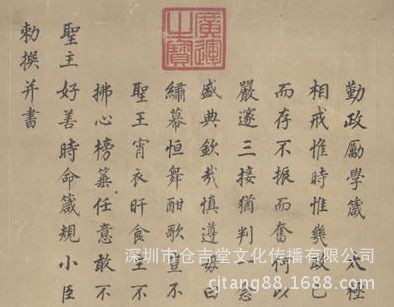 廣運之寶
勤政勵學箴 太極
相戒惟時惟幾政已
而存不振而奮何以
嚴邃三接猶判
盛典欽哉慎遵毋曰
繡幕恒舞酣歌豈不
聖王宵衣旰食主不
拂心榜箠任意敢不
聖主好善時命箴規小臣
勅撰并書
深圳市仓吉堂文化传播有限公司
cjtang88.1688.com